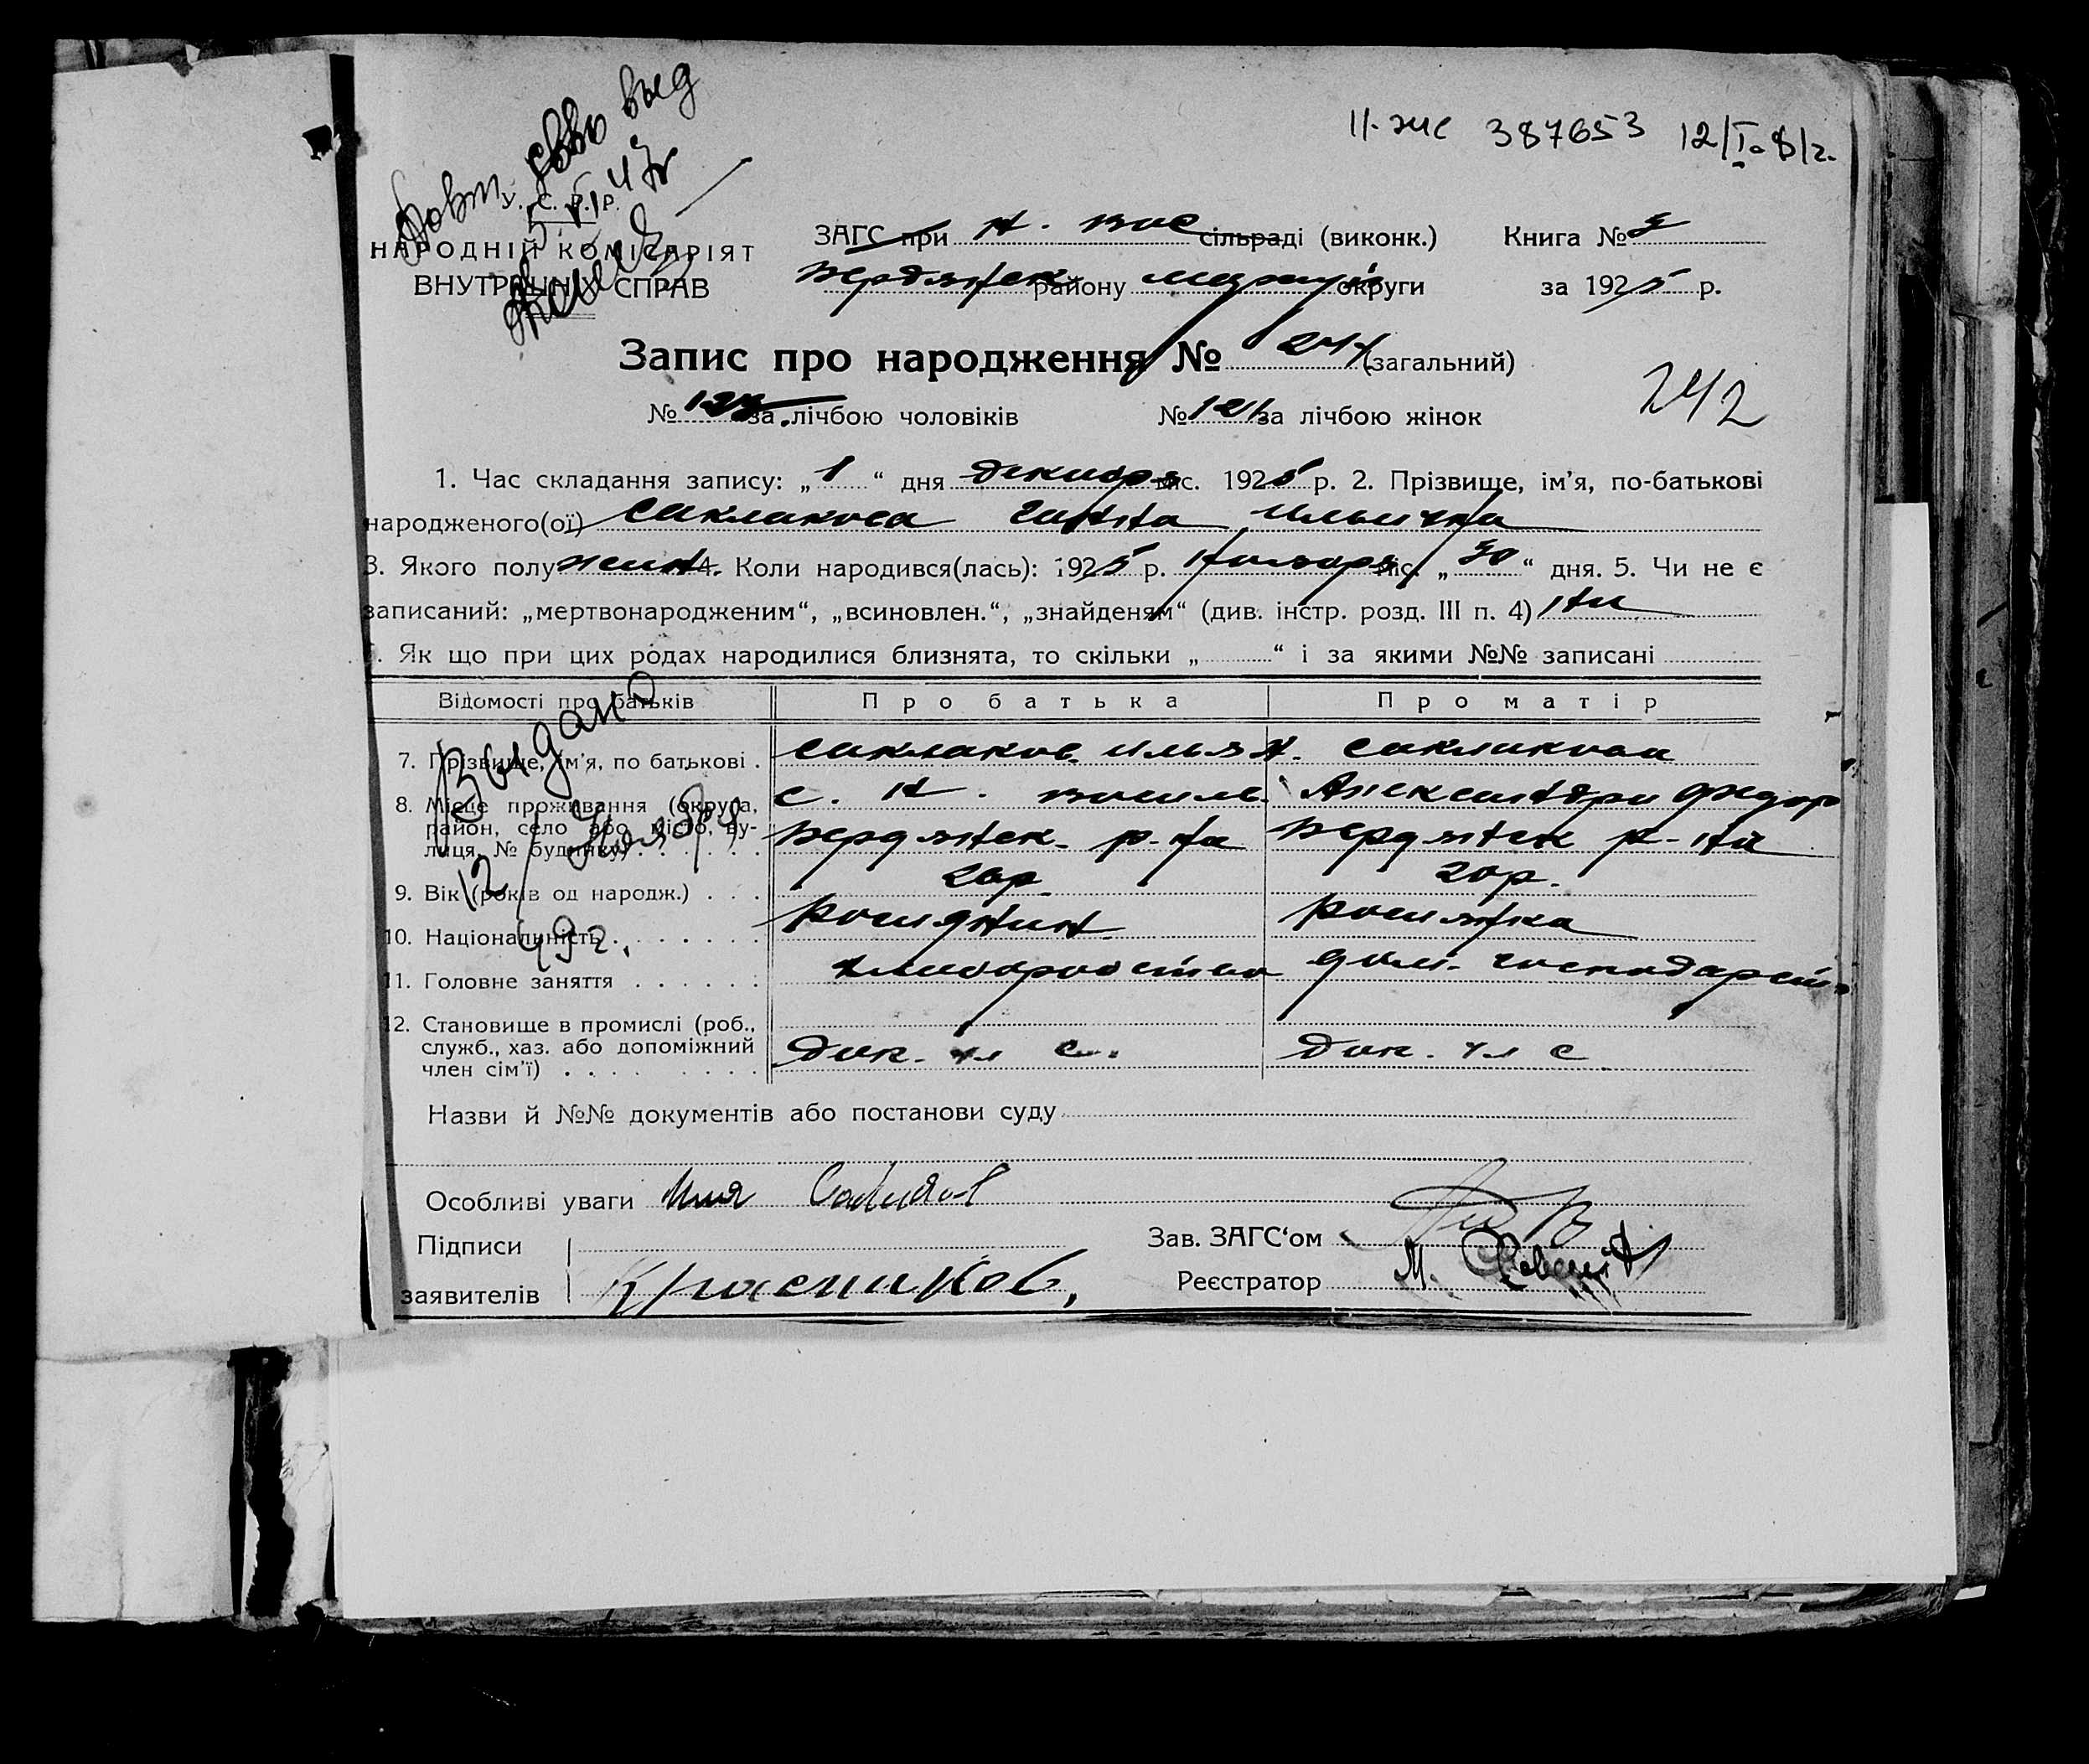 Повт. св-во выд
5/VI 47г
II-жс 387653 12/I-81г.
У. С. Р. Р.
НАРОДНІЙ КОМІСАРІЯТ
ВНУТРІШНІХ СПРАВ
ЗАГС при Н. Вас сільраді (виконк.) Книга №
Бердянск району округи за 1925 р.
Запис про народження № 244 (загальний)
242
№ 123 за лічбою чоловіків № 121 за лічбою жінок
1. Час складання запису: „1“ дня декабря міс. 1925 р. 2. Прізвище, ім’я, по-батькові
народженого(ої) Саклакова Ганна
3. Якого полу женн. 4. Коли народився(лась): 1925 р. ноября міс. „30“ дня. 5. Чи не є
записаний: „мертвонародженим“, „всиновлен.“, „знайденям“ (див. інстр. розд. III п. 4) ни
6. Як що при цих родах народилися близнята, то скільки „ “ і за якими №№ записані
Відомості про батьків Про батька Про матір
7. Прізвище, ім’я, по батькові . Саклаков Илья Н. Саклакова
8. Місце проживання (округа, с. Н. Василь. Александра Федор
район, село або місто, ву- Бердянск. р-на Бердянск р-на
лиця, № будинку) . . . . . .
9. Вік (років од народж.) . . . 20р. 20р.
10. Національність . . . . . . . Росиянин Росиянка
11. Головне заняття . . . . . . хлиборобство дом. господарст.
12. Становище в промислі (роб.,
служб., хаз. або допоміжний Доп. чл с. Доп. чл с
член сім’ї) . . . . . . . . .
Выдано
12/ Ноября
49г.
Назви й №№ документів або постанови суду
Особливі уваги Илия
Підписи Зав. ЗАГС‘ом
заявителів Красников Реєстратор М.